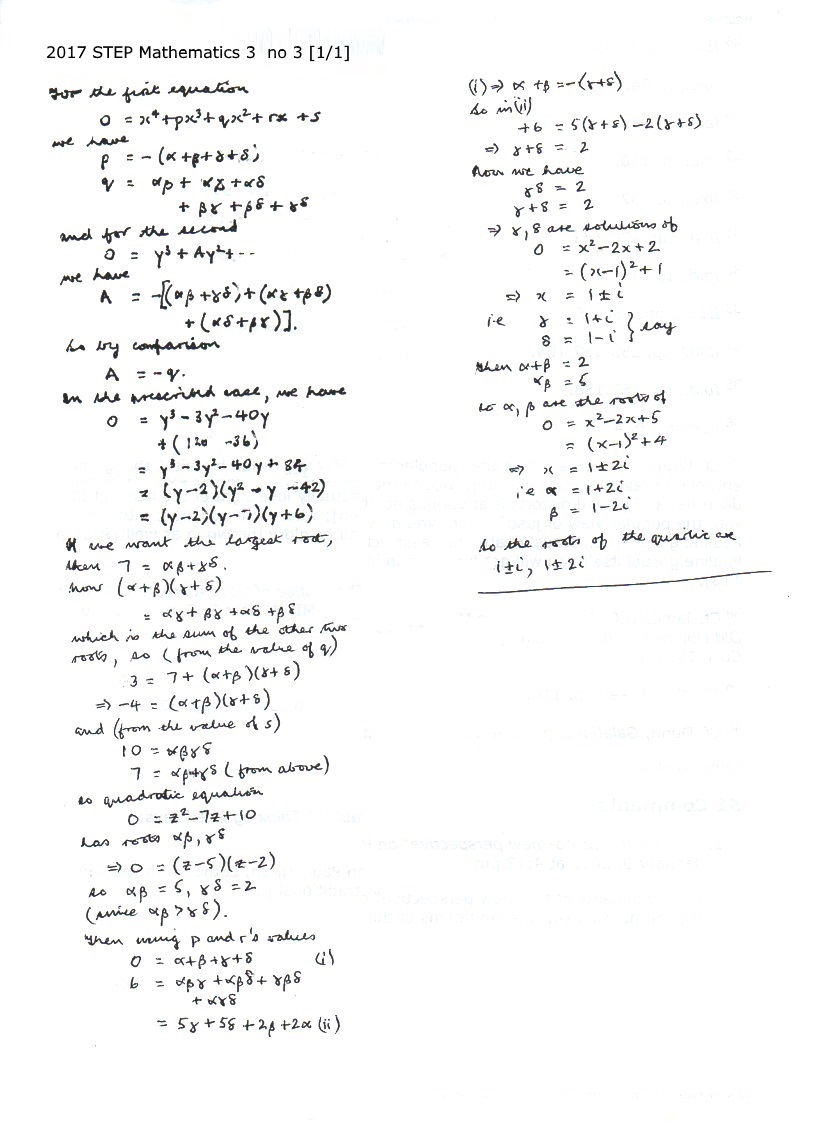 2017 STEP Mathematics 3 no 3 [1/1]
For the first equation
0 = x⁴ + px³ + qx² + rx + s
we have
p = -(α+β+γ+δ),
q = αβ + αγ + αδ
+ βγ + βδ + γδ
and for the second
0 = y³ + Ay² + --
we have
A = -[(αβ+γδ)+(αγ+βδ)
+ (αδ+βγ)].
So by comparison
A = -q.
In the prescribed case, we have
0 = y³ - 3y² - 40y
+ (120 - 36)
= y³ - 3y² - 40y + 84
= (y-2)(y² - y - 42)
= (y-2)(y-7)(y+6)
If we want the largest root,
then 7 = αβ + γδ.
Now (α+β)(γ+δ)
= αγ + βγ + αδ + βδ
which is the sum of the other two
roots, so (from the value of q)
3 = 7 + (α+β)(γ+δ)
⇒ -4 = (α+β)(γ+δ)
and (from the value of s)
10 = αβγδ
7 = αβ+γδ (from above)
so quadratic equation
0 = z² - 7z + 10
has roots αβ, γδ
⇒ 0 = (z-5)(z-2)
so αβ = 5, γδ = 2
(since αβ > γδ).
Then using p and r's values
0 = α+β+γ+δ (i)
6 = αβγ + αβδ + γβδ
+ αγδ
= 5γ + 5δ + 2β + 2α (ii)
(i) ⇒ α + β = -(γ+δ)
So in (ii)
+6 = 5(γ+δ) - 2(γ+δ)
⇒ γ+δ = 2
Now we have
γδ = 2
γ+δ = 2
⇒ γ, δ are solutions of
0 = x² - 2x + 2
= (x-1)² + 1
⇒ x = 1 ± i
i.e γ = 1+i } say
δ = 1-i
then α+β = 2
αβ = 5
so α, β are the roots of
0 = x² - 2x + 5
= (x-1)² + 4
⇒ x = 1 ± 2i
i.e α = 1+2i
β = 1-2i
So the roots of the quartic are
1±i, 1±2i